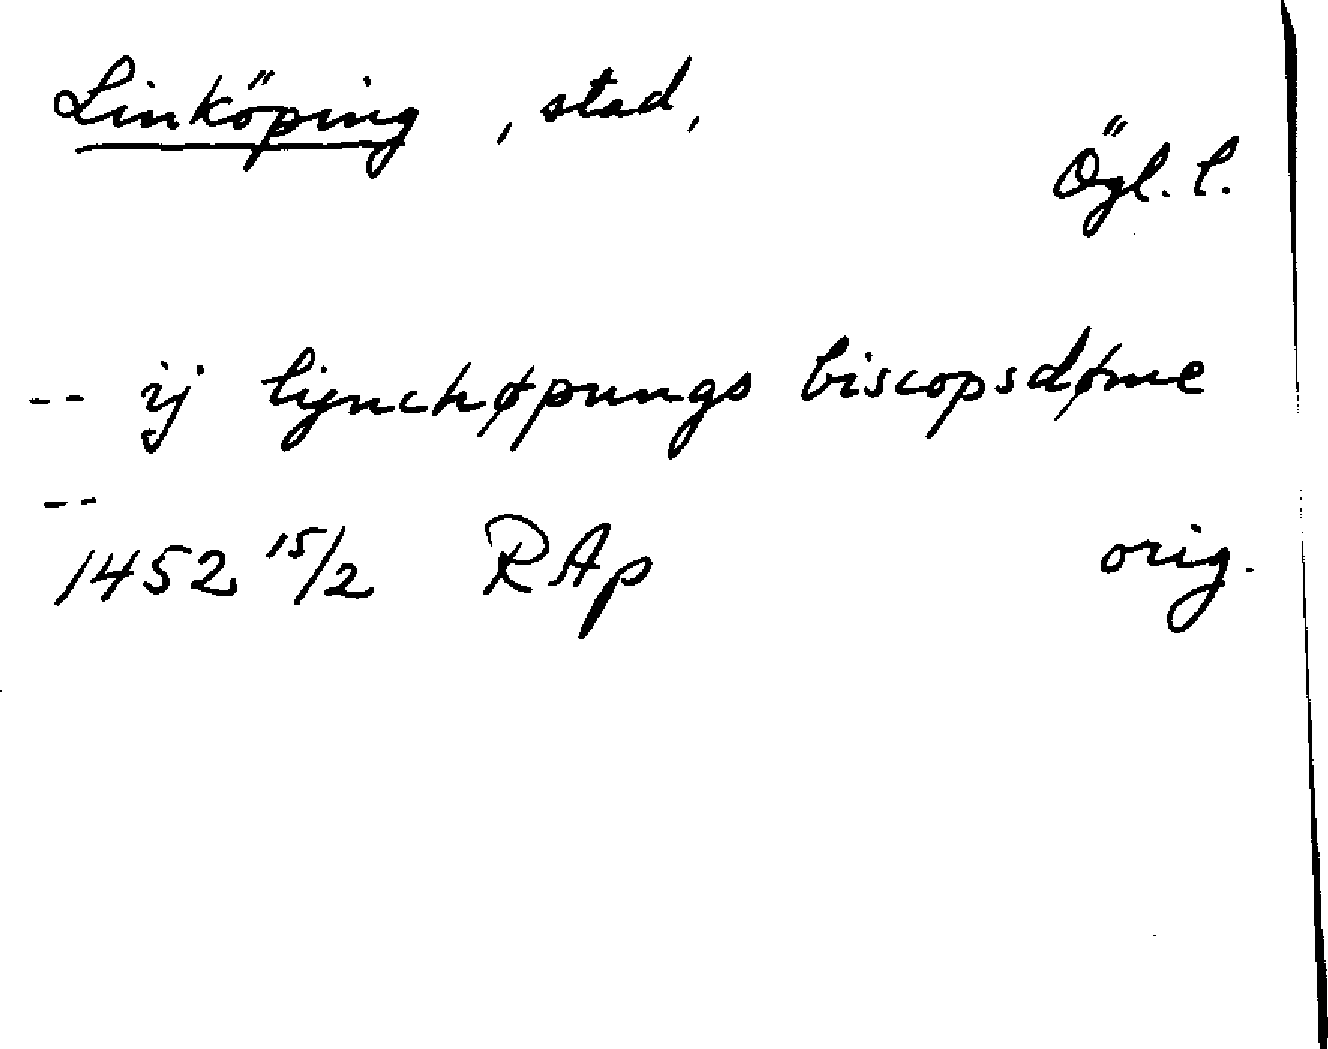 Linköping, stad,
Ögl. l.
-- ij lijnchøpungs biscopsdøme
--
1452 15/2 RAp orig.